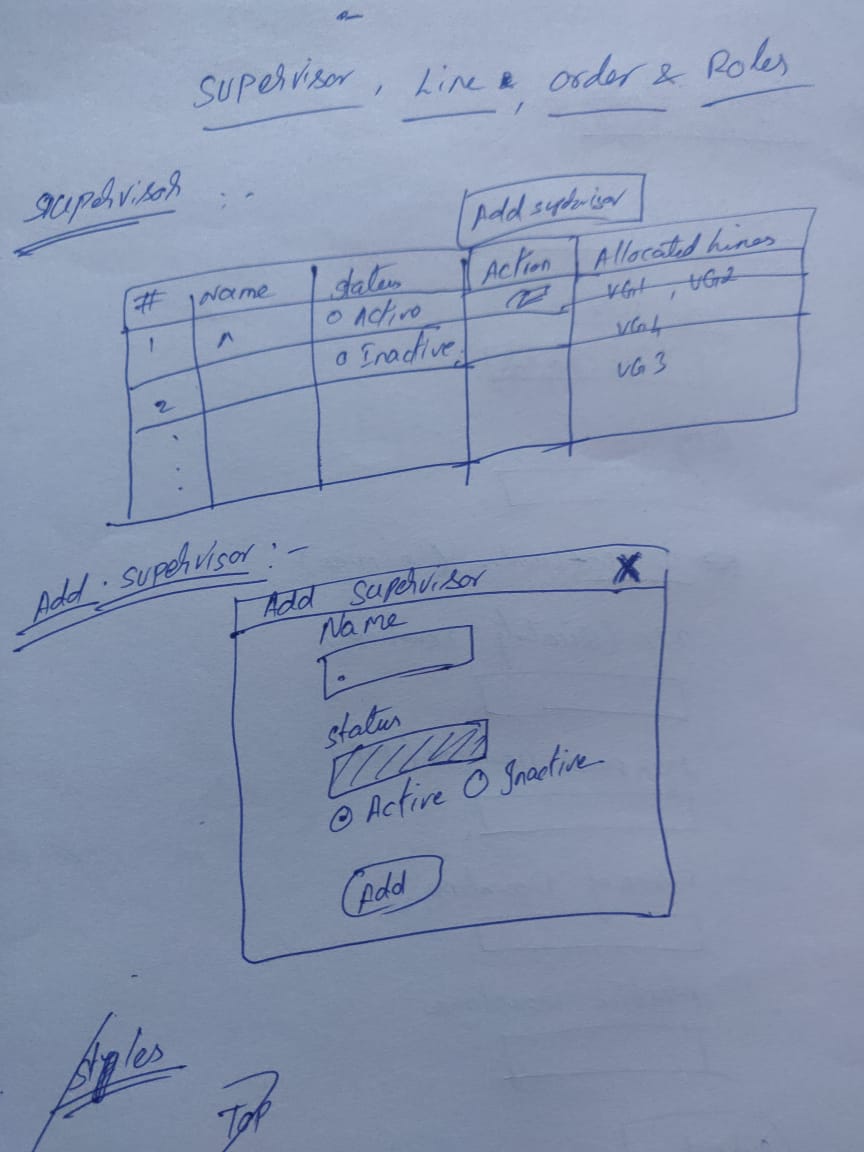 Supervisor, Line, order & Roles
Supervisor :-
Add supervisor
# Name Status Action Allocated Lines
1 A O Active VG1, VG2
O Inactive VG4
2 VG3
Add Supervisor :-
Add Supervisor X
Name
Status
Active Inactive
Add
Styles
TOP